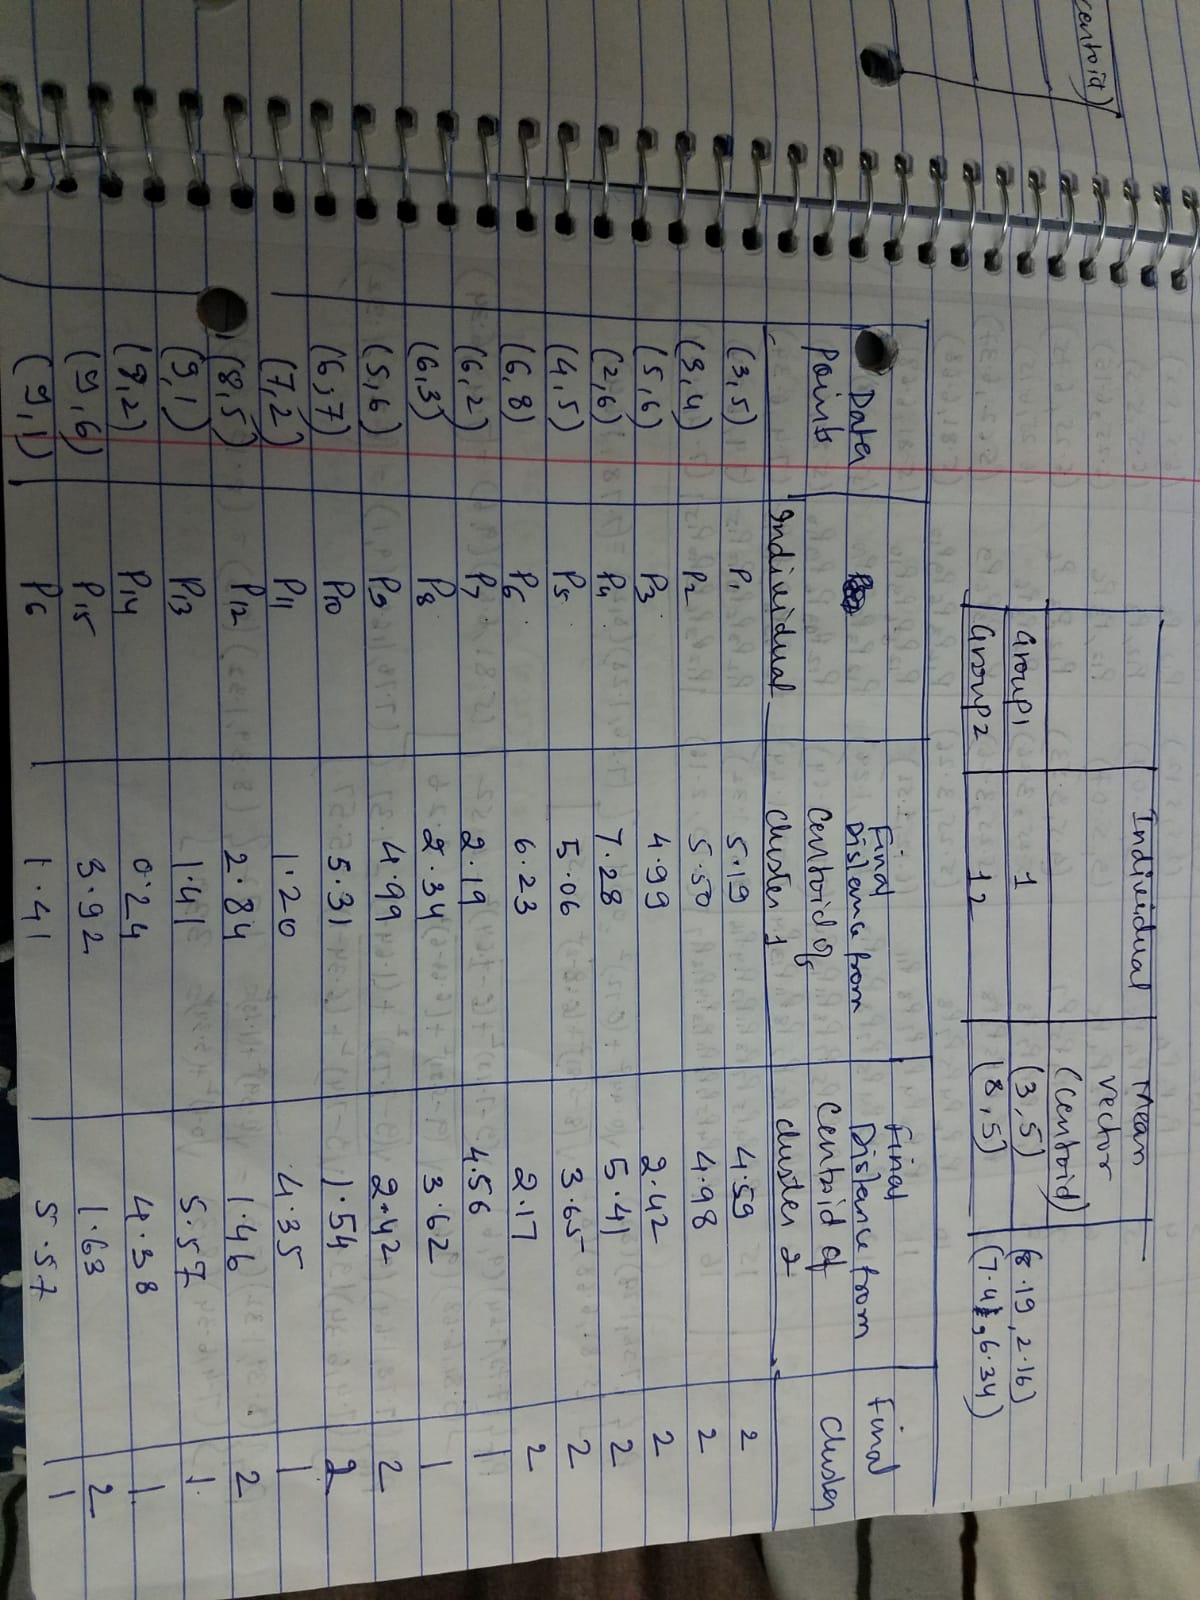 centroid)
Individual Mean vector (centroid)
Group 1 1 (3,5) (8.19, 2.16)
Group 2 12 (8,5) (7.41, 6.34)
Data Points Individual Final Distance from Centroid of cluster 1 Final Distance from Centroid of cluster 2 Final cluster
(3,5) P1 5.19 4.59 2
(3,4) P2 5.50 4.98 2
(5,6) P3 4.99 2.42 2
(2,6) P4 7.28 5.41 2
(4,5) P5 5.06 3.65 2
(6,8) P6 6.23 2.17 2
(6,2) P7 2.19 4.56 1
(6,3) P8 2.34 3.62 1
(5,6) P9 4.99 2.42 2
(6,7) P10 5.31 1.54 2
(7,2) P11 1.20 4.35 1
(8,5) P12 2.84 1.46 2
(9,1) P13 1.41 5.57 1
(8,2) P14 0.24 4.38 1
(9,6) P15 3.92 1.63 2
(9,1) P6 1.41 5.57 1